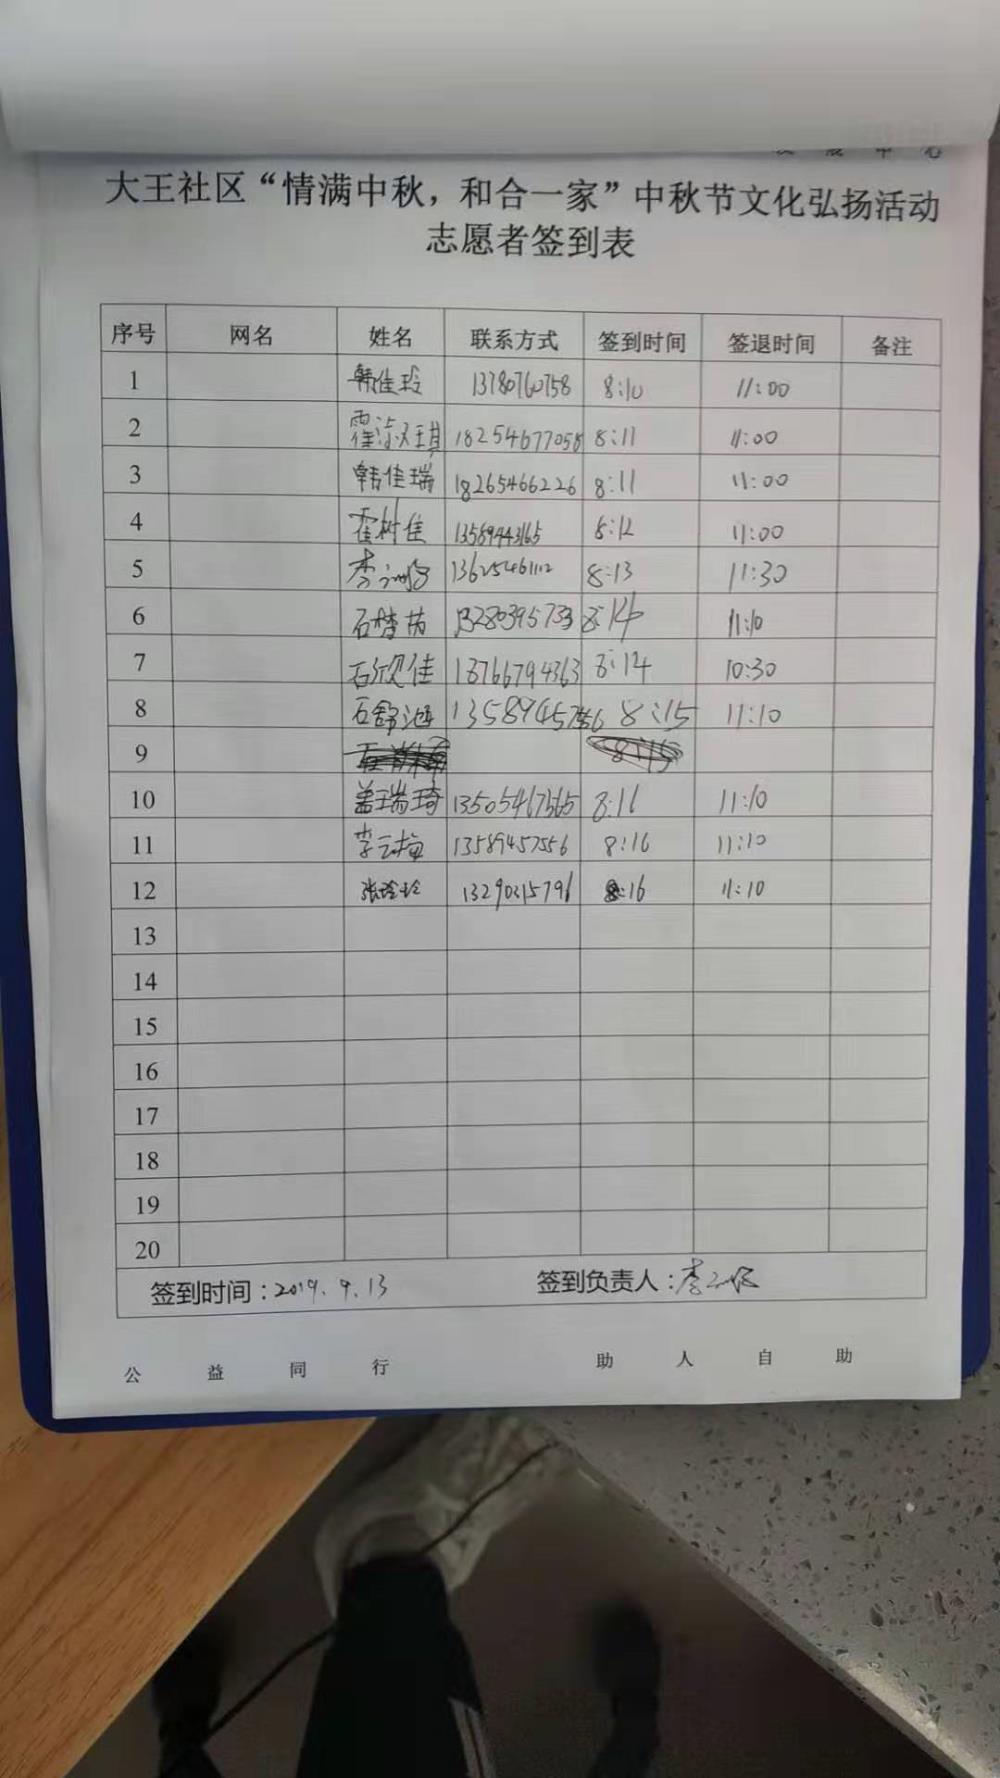 展 中 心
大王社区“情满中秋，和合一家”中秋节文化弘扬活动
志愿者签到表
序号 网名 姓名 联系方式 签到时间 签退时间 备注
1 韩佳玲 13780760758 8:10 11:00
2 霍淑琪 18254677058 8:11 11:00
3 韩佳瑞 18265466226 8:11 11:00
4 霍树佳 13589443165 8:12 11:00
5 李 13625461112 8:13 11:30
6 石梦茜 13280395733 8:14 11:10
7 石欣佳 13766794363 8:14 10:30
8 石舒涵 8:15 11:10
9
10 盖瑞琦 13505467565 8:16 11:10
11 李云梅 13589457556 8:16 11:10
12 张玲玲 13290315796 8:16 11:10
13
14
15
16
17
18
19
20
签到时间：2019.9.13 签到负责人：李
公 益 同 行 助 人 自 助